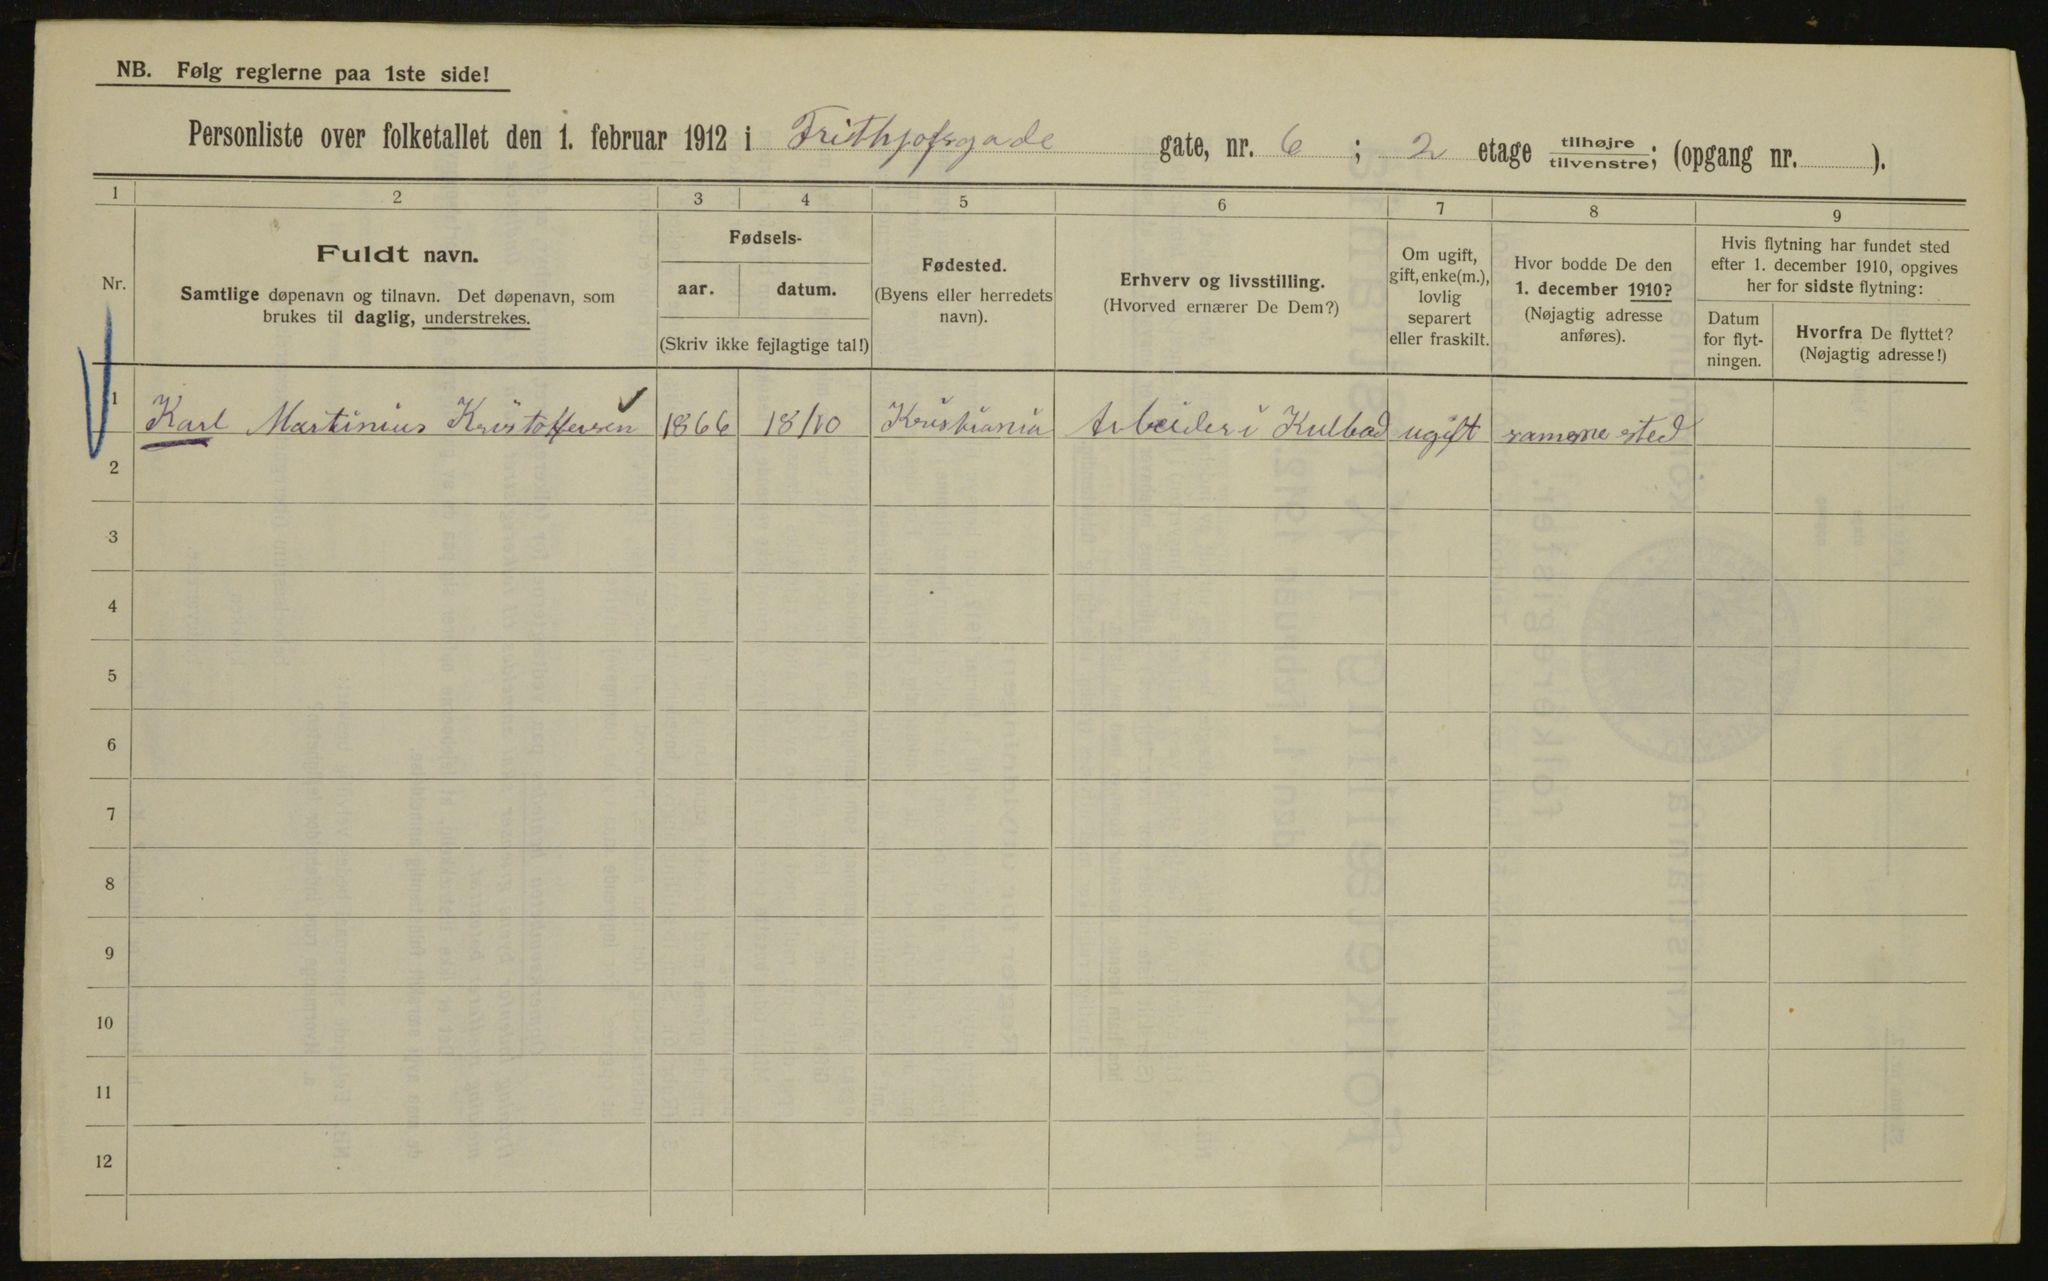 NB. Følg reglerne paa 1ste side!
Personliste over folketallet den 1. februar 1912 i Frithjofsgade gate, nr. 6 ; 2 etage tilhøjre/tilvenstre; (opgang nr. ).
1 2 3 4 5 6 7 8 9
Nr.
Fuldt navn.
Samtlige døpenavn og tilnavn. Det døpenavn, som
brukes til daglig, understrekes.
Fødsels-
aar. datum.
(Skriv ikke fejlagtige tal!)
Fødested.
(Byens eller herredets
navn).
Erhverv og livsstilling.
(Hvorved ernærer De Dem?)
Om ugift,
gift, enke(m.),
lovlig
separert
eller fraskilt.
Hvor bodde De den
1. december 1910?
(Nøjagtig adresse
anføres).
Hvis flytning har fundet sted
efter 1. december 1910, opgives
her for sidste flytning:
Datum
for flyt-
ningen.
Hvorfra De flyttet?
(Nøjagtig adresse!)
1 Karl Martinius Kristoffersen 1866 18/10 Kristiania Arbeider i Kulbod ugift samme sted
2
3
4
5
6
7
8
9
10
11
12